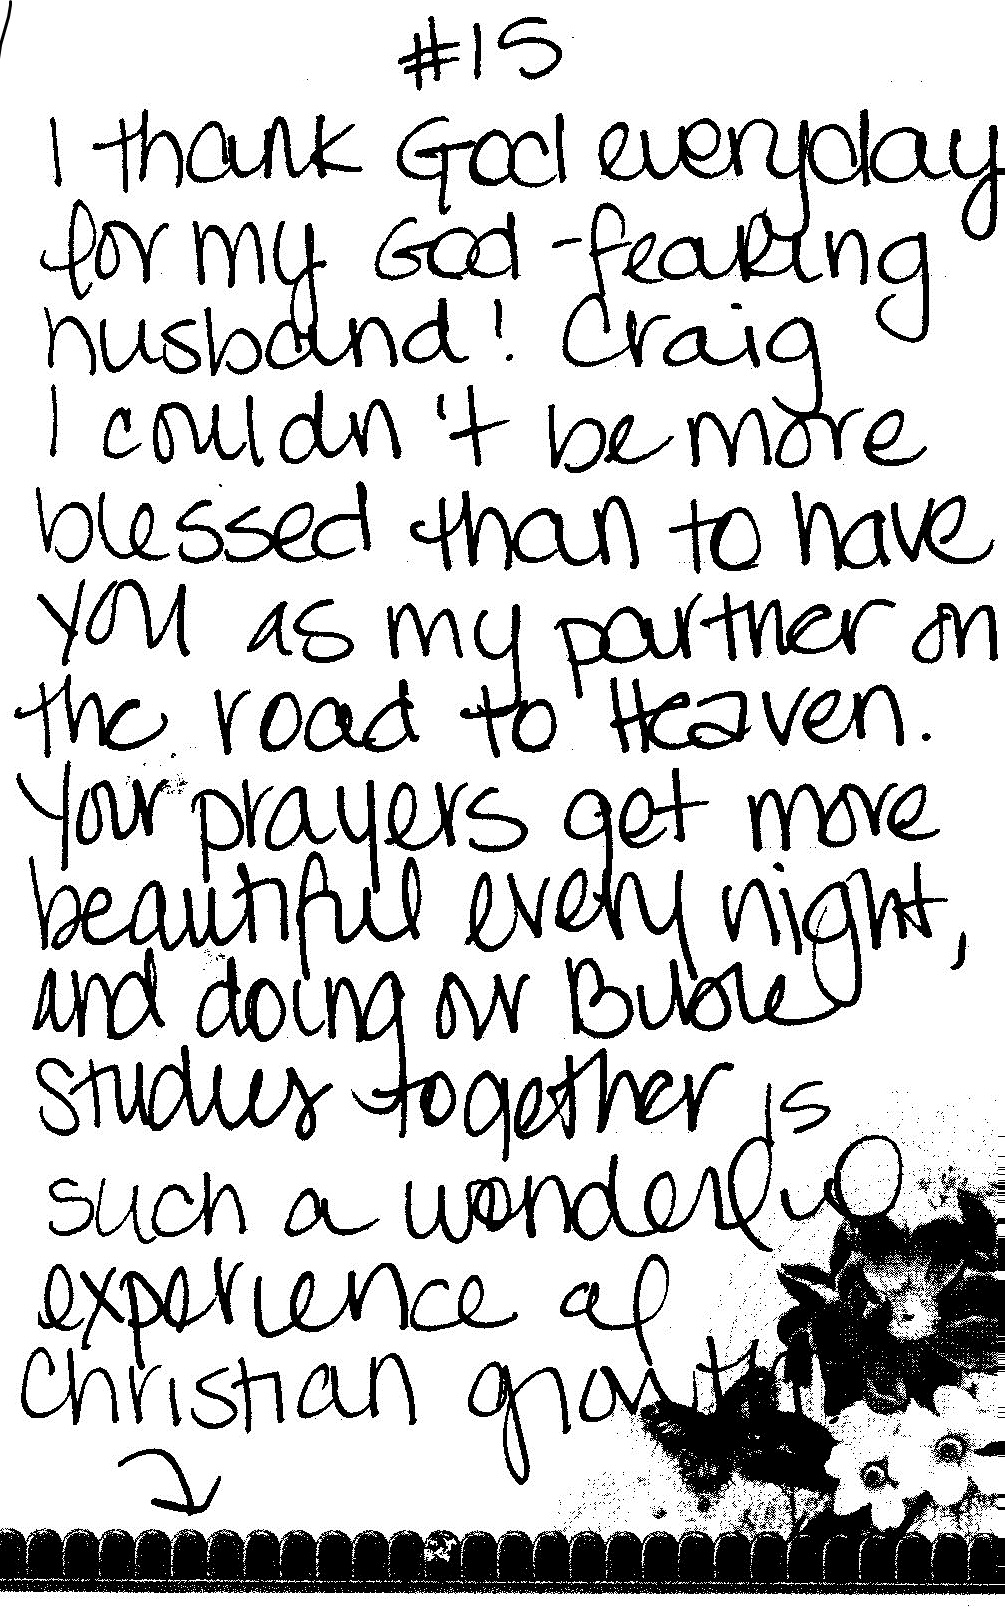 #15
I thank God everyday
for my God-fearing
husband! Craig
I couldn't be more
blessed than to have
you as my partner on
the road to Heaven.
Your prayers get more
beautiful every night,
and doing our Bible
studies together is
such a wonderful
experience of
Christian growth